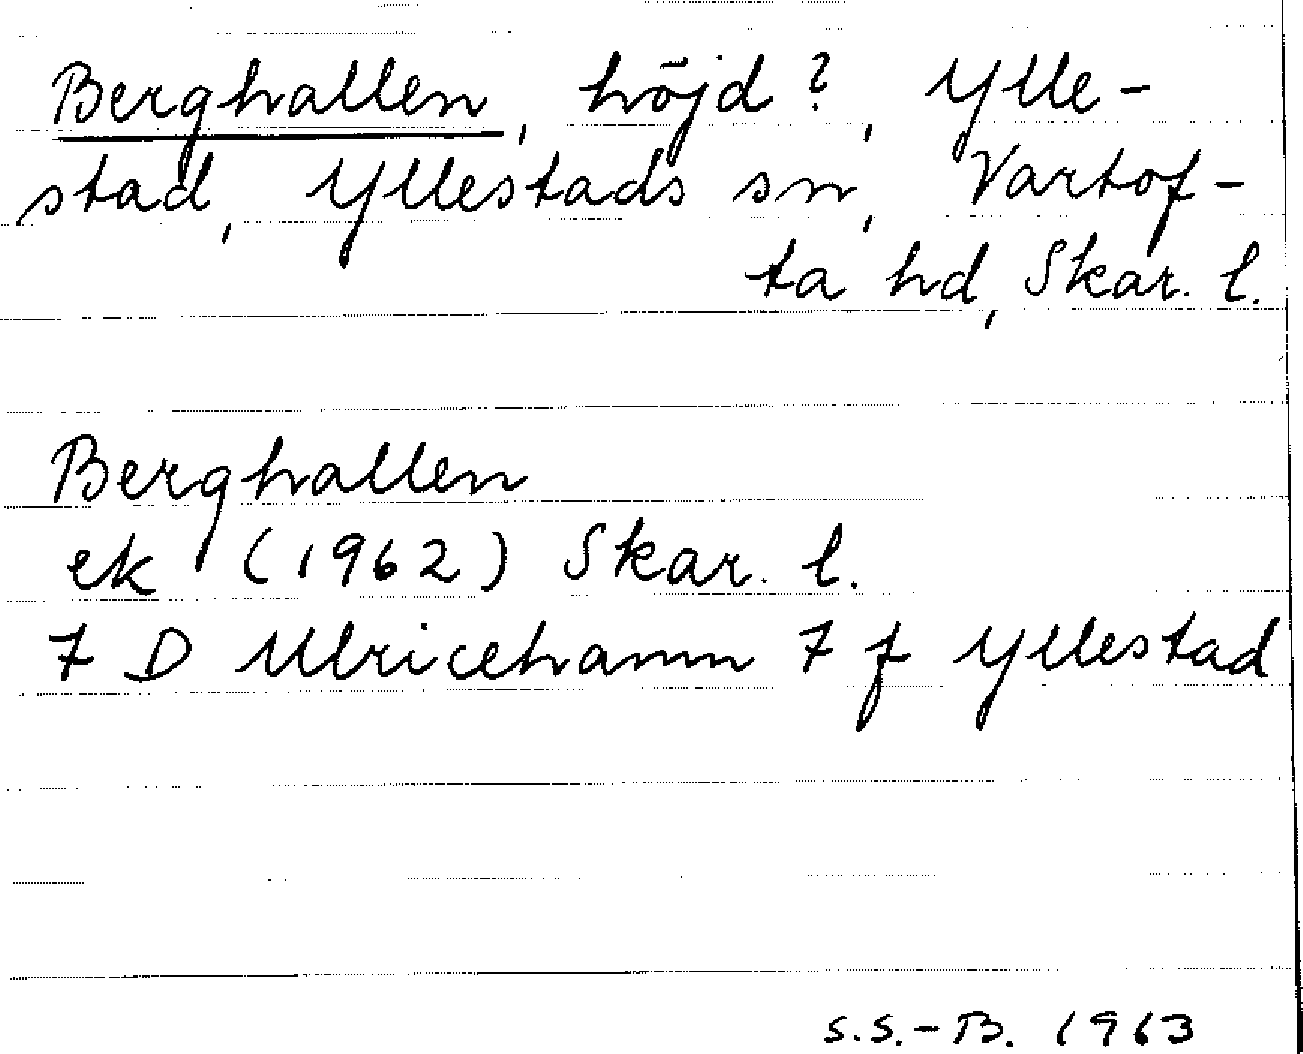 Berghallen, höjd?, Ylle-
stad, Yllestads sn, Vartof-
ta hd, Skar. l.
Berghallen
ek (1962) Skar. l.
7 D Ulricehamn 7 f Yllestad
S.S.-B. 1963